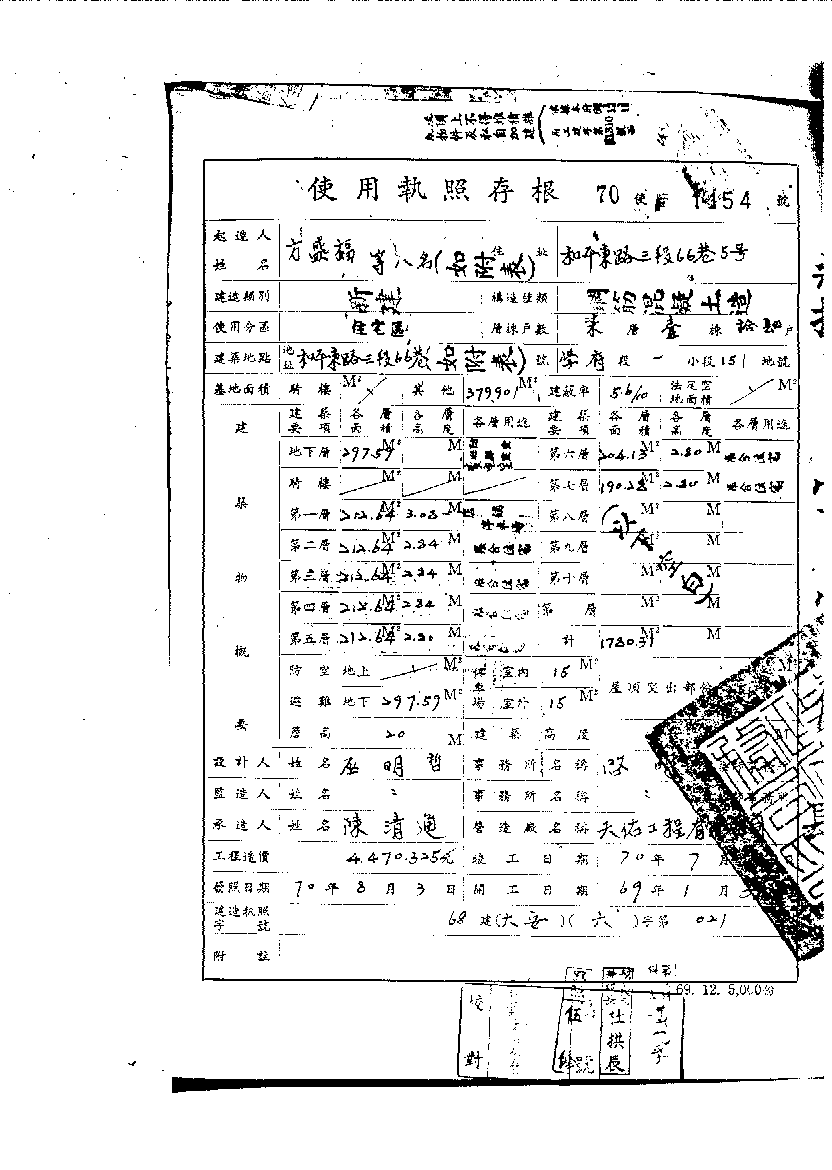 使用執照存根 70 使字 1454 號
起造人姓名 方盛福 等八名(如附表) 住址 和平東路三段66巷5号
建造類別 新建 構造種類 鋼筋混凝土造
使用分區 住宅區 層棟戶數 柒層 壹棟 戶
建築地點 地址 和平東路三段66巷(如附表)號 學府段一小段151地號
基地面積 騎樓 M² 其他 379.90 M² 建蔽率 5.6/10 法定空地面積 M²
建築要項 各層面積 各層高度 各層用途 建築要項 各層面積 各層高度 各層用途
建築物概要
地下層 297.59 M² M 第六層 204.13 M² 2.80 M 集合住宅
騎樓 M² M 第七層 190.28 M² 2.80 M 集合住宅
第一層 212.64 M² 3.03 M 第八層 M² M
第二層 212.64 M² 2.84 M 集合住宅 第九層 M² M
第三層 212.64 M² 2.84 M 集合住宅 第十層 M² M
第四層 212.64 M² 2.84 M 第 層 M² M
第五層 212.64 M² 2.80 M 計 1780.31 M² M
(以下空白)
防空 地上 M² 停車場 室內 15 M² 屋頂突出部份 M²
避難 地下 297.59 M² 室外 15 M²
簷高 20 M 建築高度 M
設計人 姓名 巫明哲 事務所名稱
監造人 姓名 〃 事務所名稱 〃
承造人 姓名 陳清通 營造廠名稱 天佑工程有
工程造價 4,470,325元 竣工日期 70年7月
發照日期 70年8月3日 開工日期 69年1月
建造執照字號 68建(大安)(六)字第021
附註
69. 12. 5,000
校對
伍 號